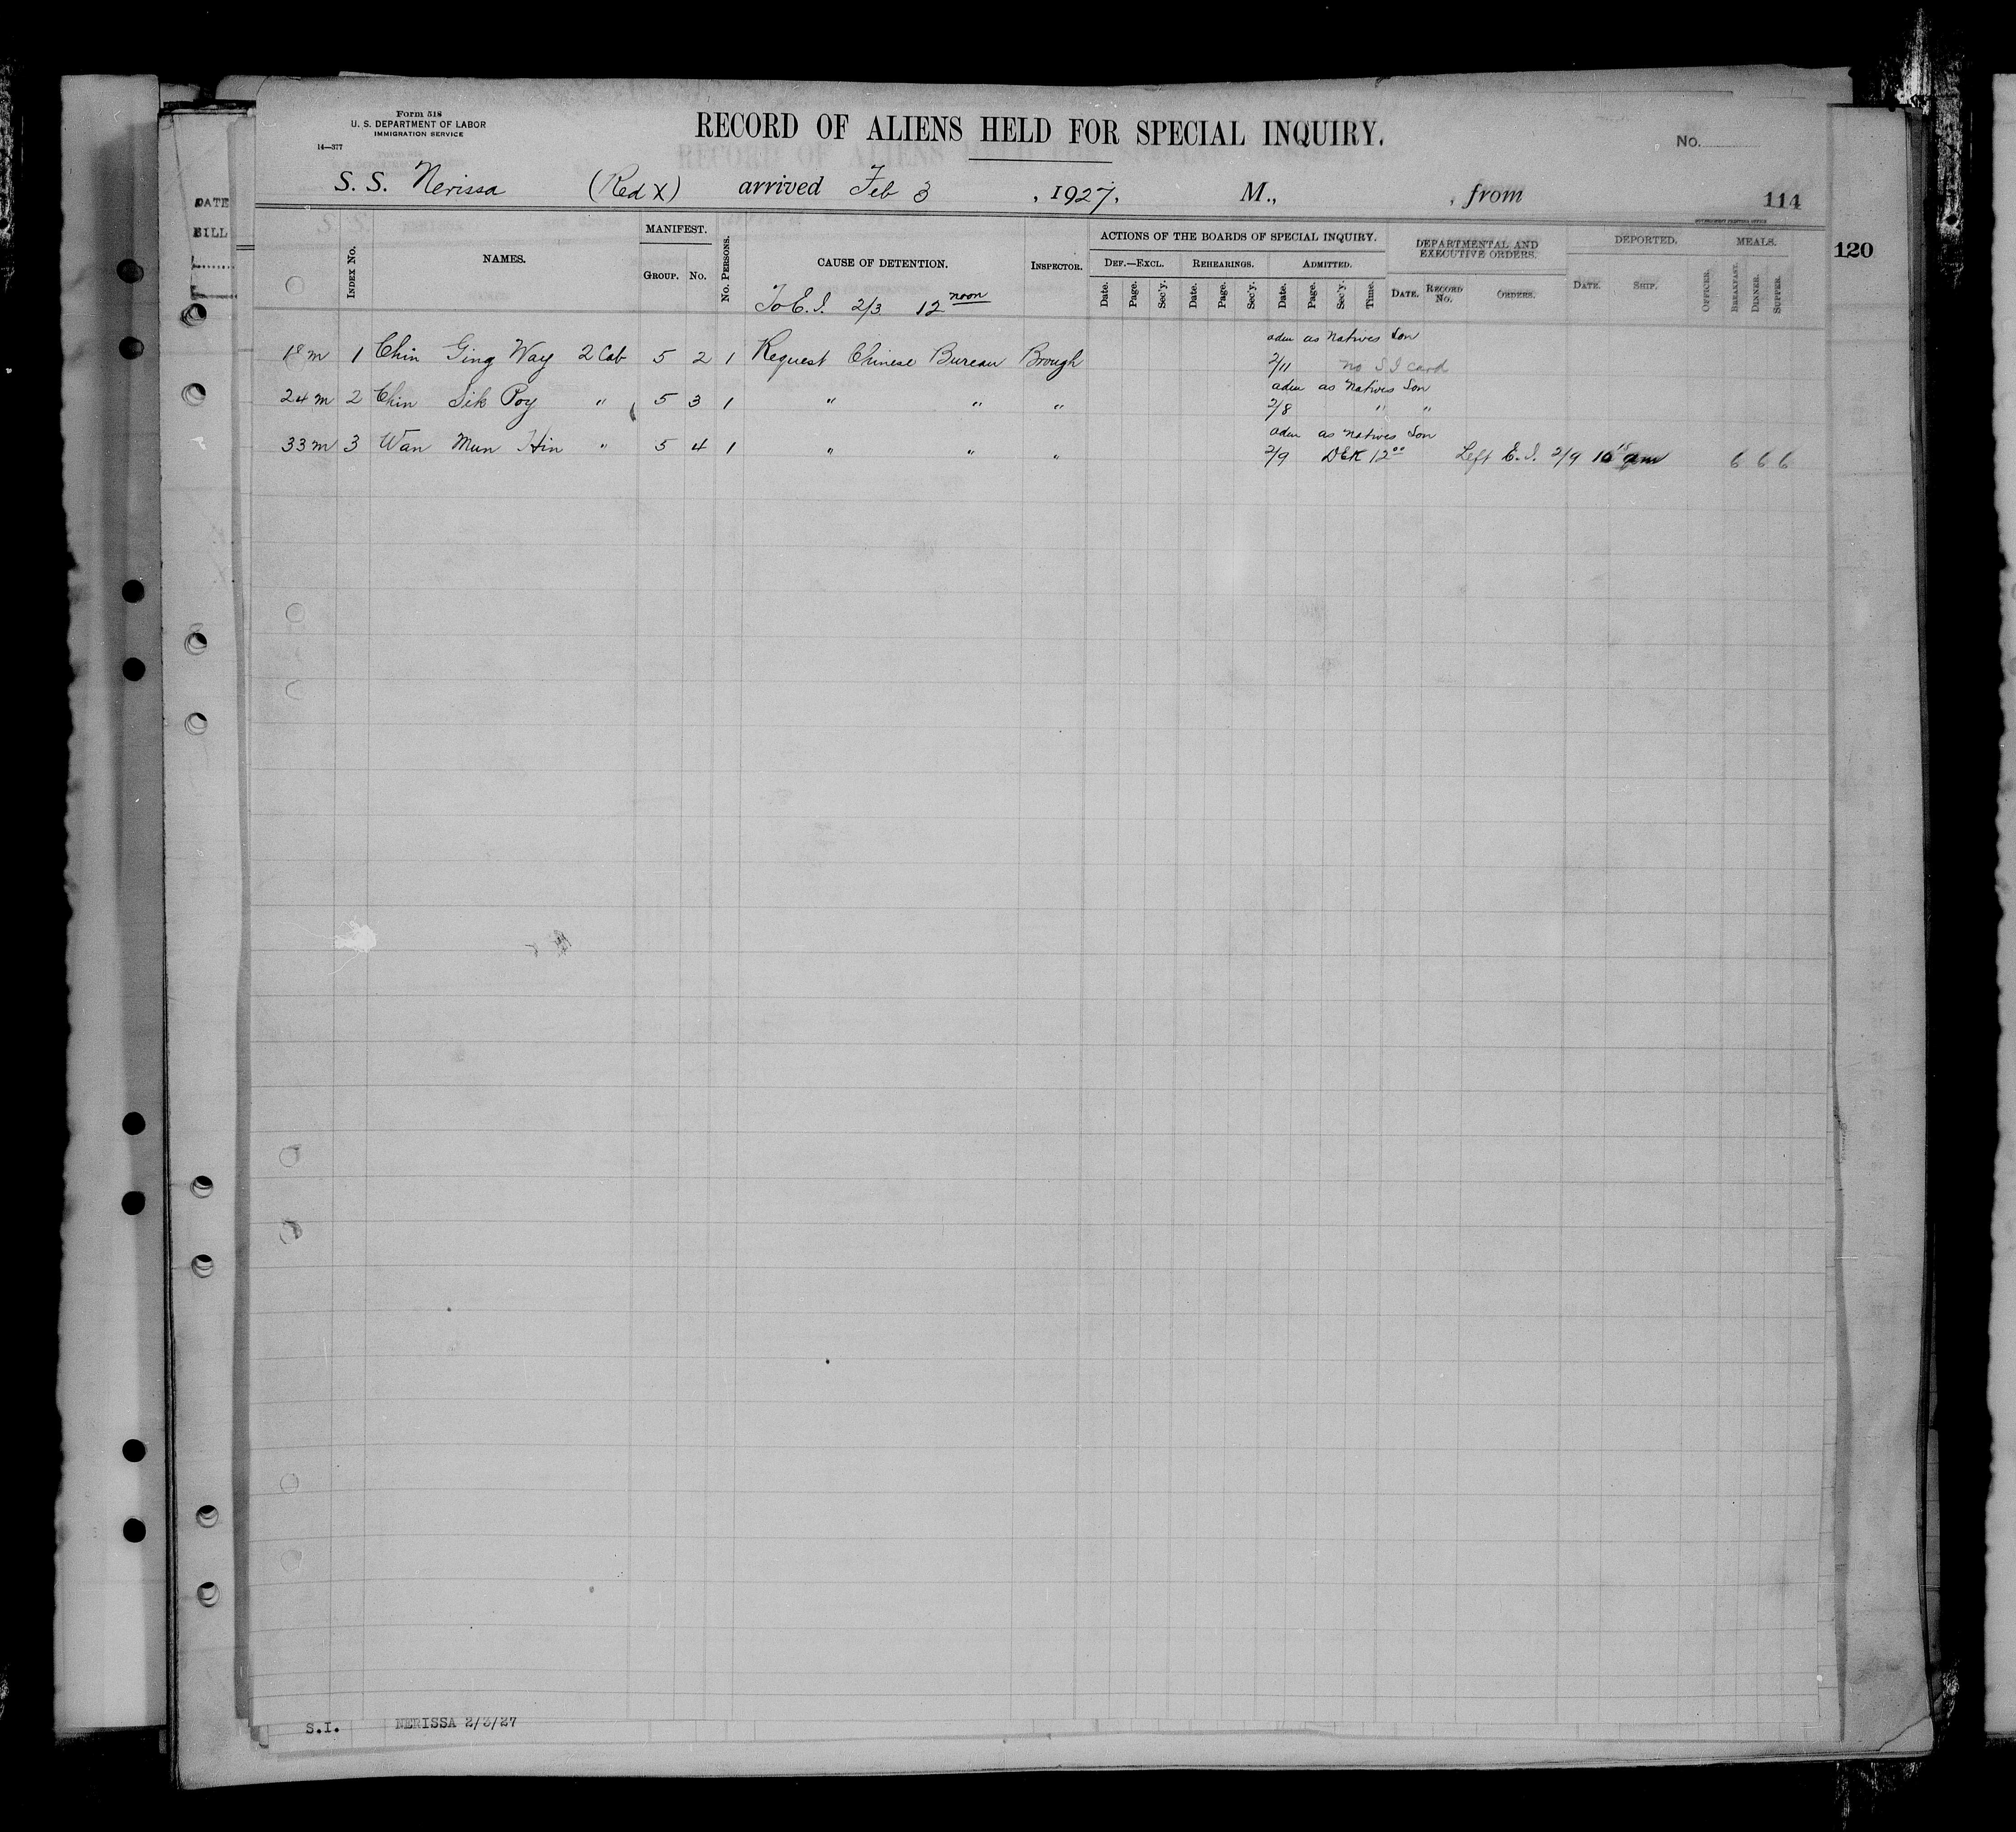 Form 518
U. S. DEPARTMENT OF LABOR
IMMIGRATION SERVICE
14—377
RECORD OF ALIENS HELD FOR SPECIAL INQUIRY.
No.
S. S. Nerissa (Red X) arrived Feb 3, 1927, M., , from
114
DATE
BILL
120
GOVERNMENT PRINTING OFFICE
INDEX No.
NAMES.
MANIFEST.
GROUP. No.
No. PERSONS.
CAUSE OF DETENTION.
INSPECTOR.
ACTIONS OF THE BOARDS OF SPECIAL INQUIRY.
DEF.—EXCL. REHEARINGS. ADMITTED.
Date. Page. Sec'y. Date. Page. Sec'y. Date. Page. Sec'y. Time.
DEPARTMENTAL AND EXECUTIVE ORDERS.
DATE. RECORD No. ORDERS.
DEPORTED.
DATE. SHIP.
OFFICER.
MEALS.
BREAKFAST. DINNER. SUPPER.
To E. I. 2/3 12 noon
adm as Natives Son
18 m 1 Chin Ging Way 2 Cab 5 2 1 Request Chinese Bureau Brough 2/11 no S I card
adm as Natives Son
24 m 2 Chin Sik Poy " 5 3 1 " " " 2/8 " "
adm as Natives Son
33 m 3 Wan Mun Hin " 5 4 1 " " " 2/9 DEK 12⁰⁰ Left E. I. 2/9 10¹⁵ am 6 6 6
S.I. NERISSA 2/3/27